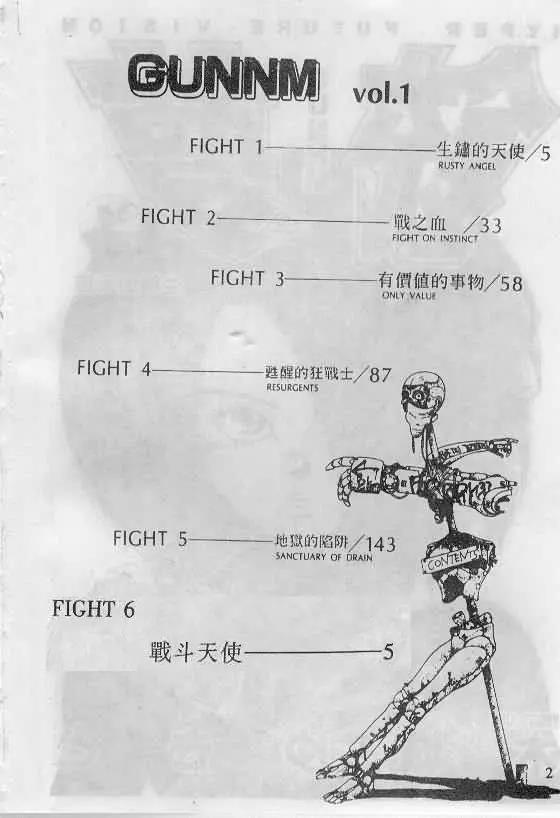 HYPER FUTURE VISION
GUNNM vol.1
FIGHT 1 生鏽的天使/5
RUSTY ANGEL
FIGHT 2 戰之血 /33
FIGHT ON INSTINCT
FIGHT 3 有價值的事物/58
ONLY VALUE
FIGHT 4 甦醒的狂戰士/87
RESURGENTS
FIGHT 5 地獄的陷阱/143
SANCTUARY OF DRAIN
CONTENTS
FIGHT 6
戰斗天使 5
2